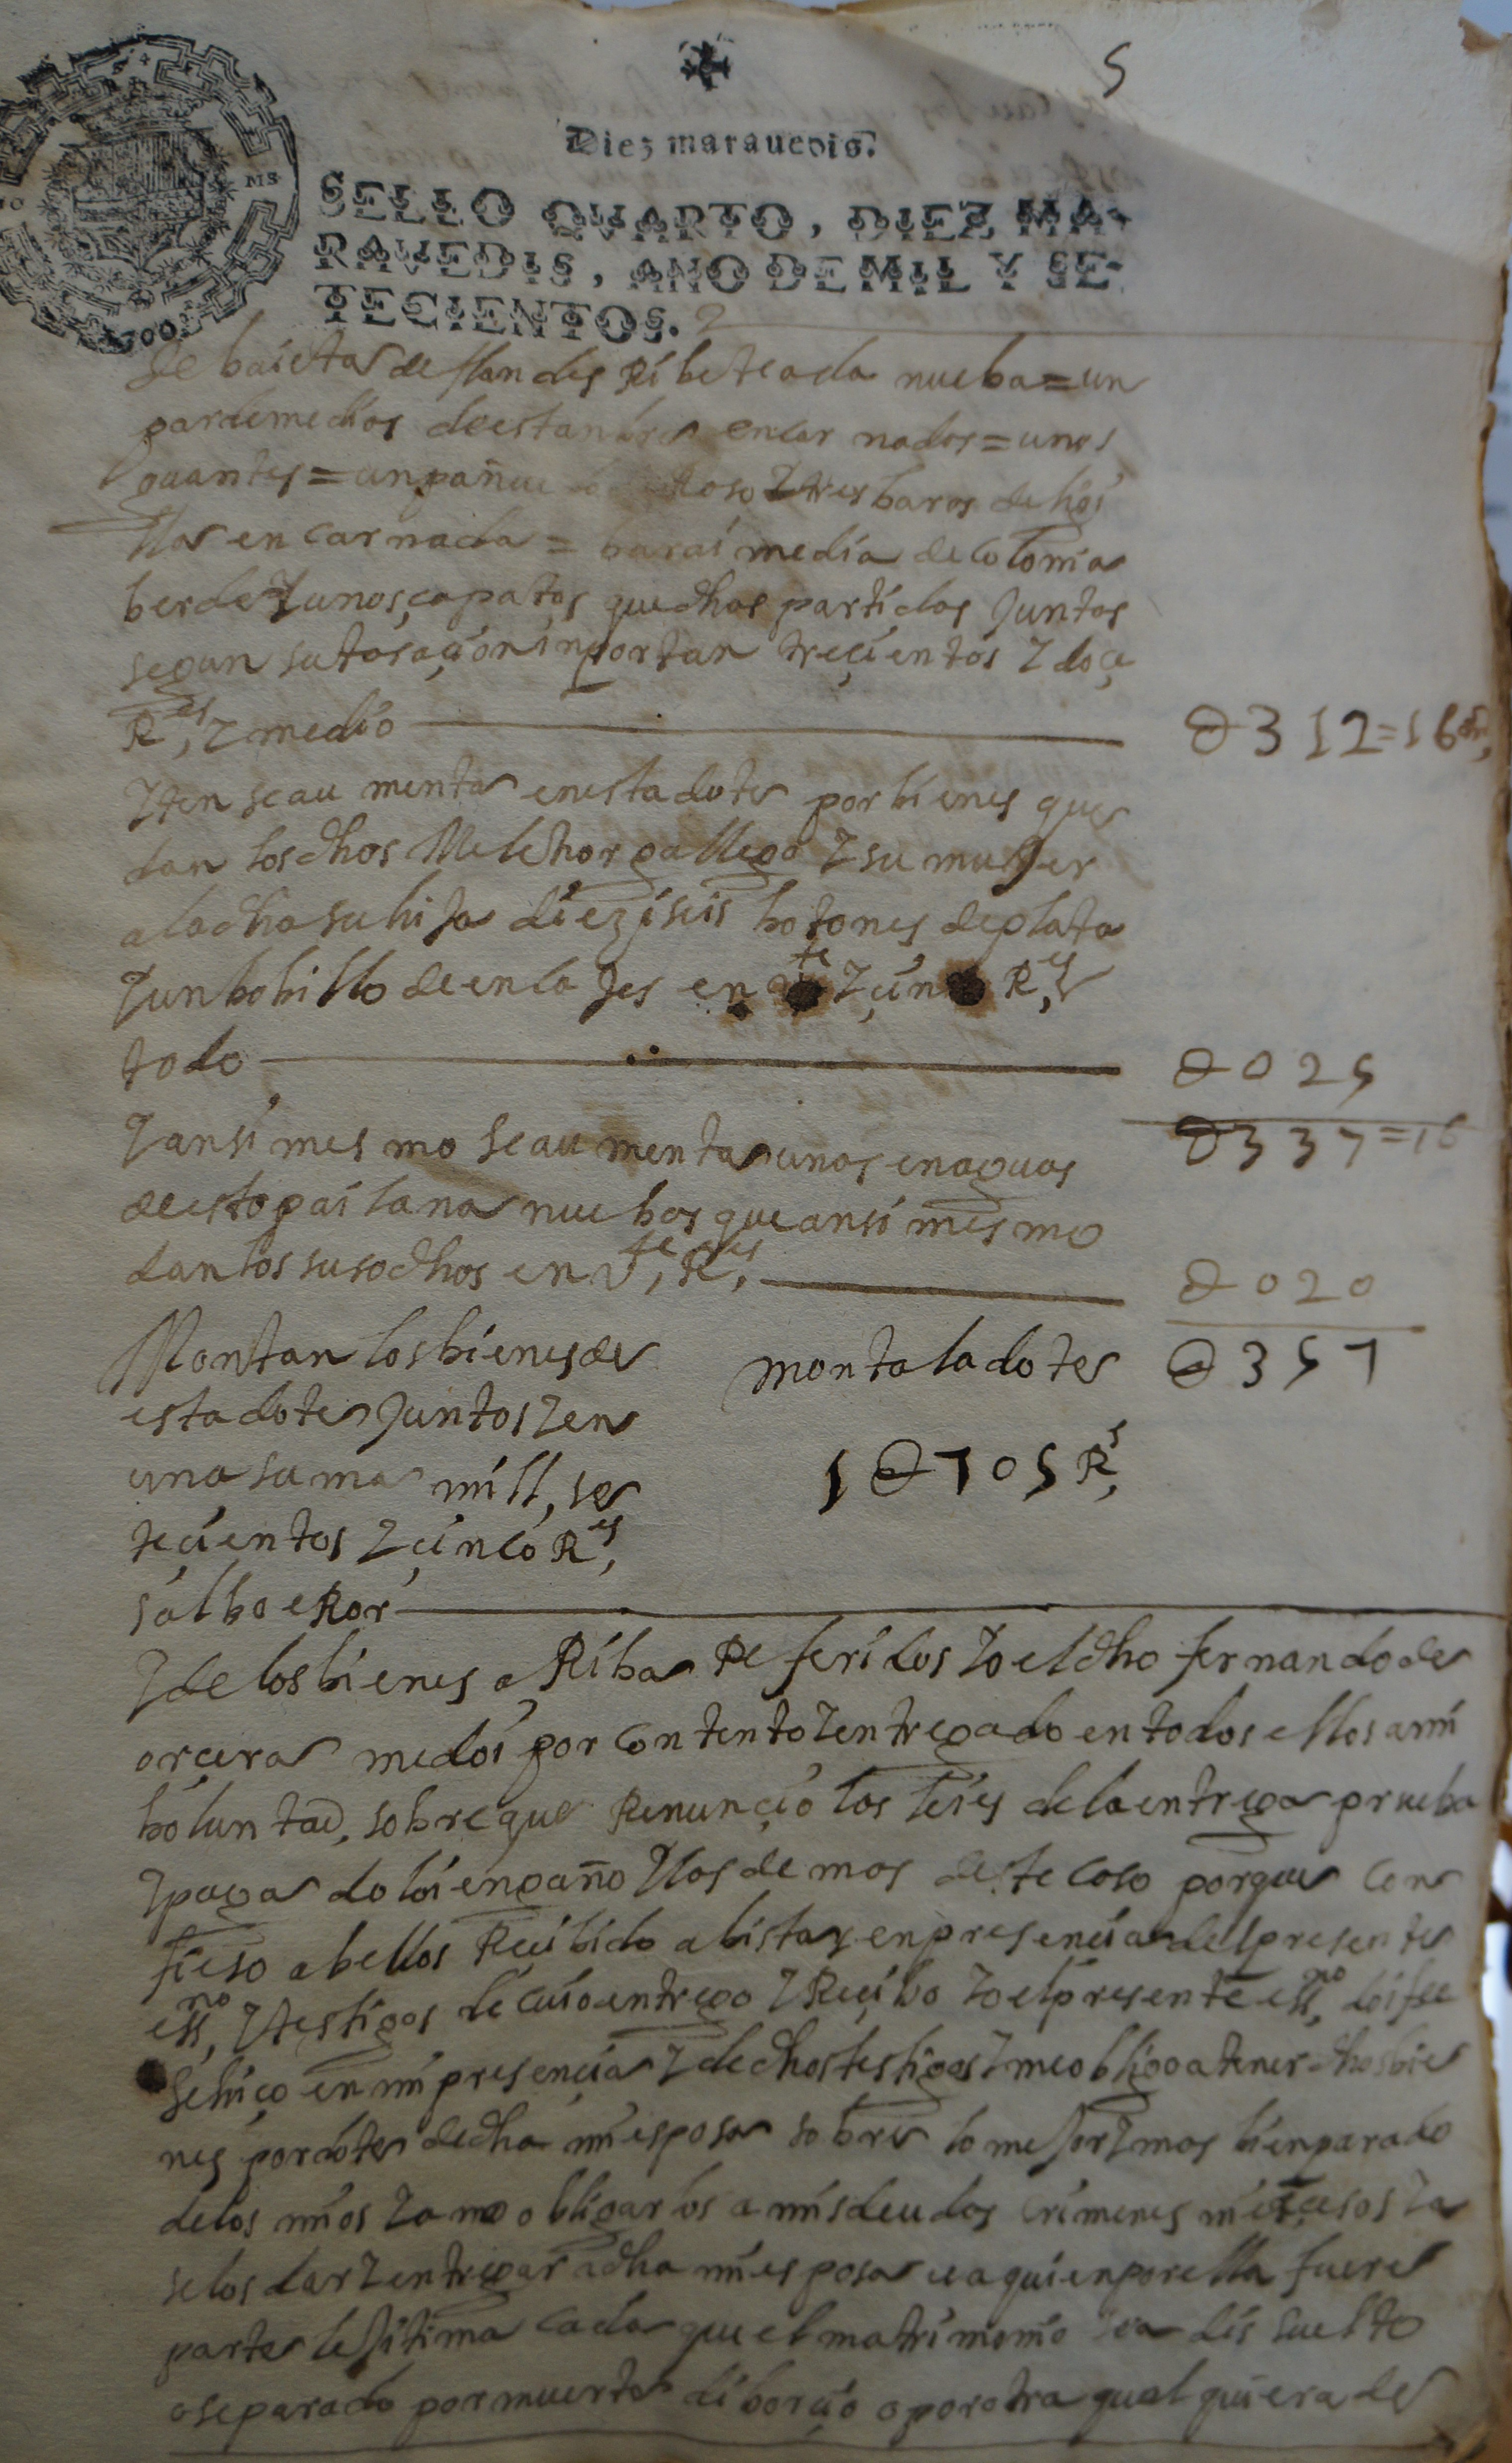 5
Diez marauedis.
SELLO QVARTO, DIEZ MA-
RAVEDIS, AÑO DE MIL Y SE-
TECIENTOS.
de baieta de flandes Ribeteada nueba = un
par de medias de estanbre encarnados = unos
guantes = un pañue Y tres baras de hi
llas encarnada = bara i media de colonia
berde Y unos çapatos que dhas partidas Juntas
segun su tasaçion inportan treçientos Y doçe
R.es Y medio
312=16
Yten se aumenta en esta dote por bienes que
dan los dhos Melchor gallego Y su muger
a la dha su hija diez i seis botones de plata
Y un bobillo de encajes en te Y çinco R.es
todo
025
337=16
Y ansi mesmo se aumenta unas enaguas
de estopa i lana nuebas que ansi mesmo
dan los susodhos en v.te R.es
020
357
Montan los bienes de
esta dote Juntos Y en
una suma mill, se
teçientos Y çinco R.es
salbo eRor
monta la dote
1U705 R.s
Y de los bienes aRiba Referidos Yo el dho fernando de
orçera me doi por contento Y entregado en todos ellos a mi
boluntad, sobre que Renunçio las leies de la entrega prueba
Y paga dolo i engaño Y las demas deste caso porque con
fieso abellos Reçibido a bista y en presençia del presente
ess.no Y testigos de cuio entrego Y Reçibo Yo el presente ess.no doi fee
se hiço en mi presençia Y de dhos testigos Y me obligo a tener dhos bie
nes por dote de dha mi esposa sobre lo mejor Y mas bien parado
de los mios Y a no obligarlos a mis deudas crimenes ni exçesos Y a
se los dar Y entregar a dha mi esposa u a quien por ella fuere
parte lejitima cada que el matrimonio sea disuelto
o separado por muerte diborçio o por otra qualquiera de